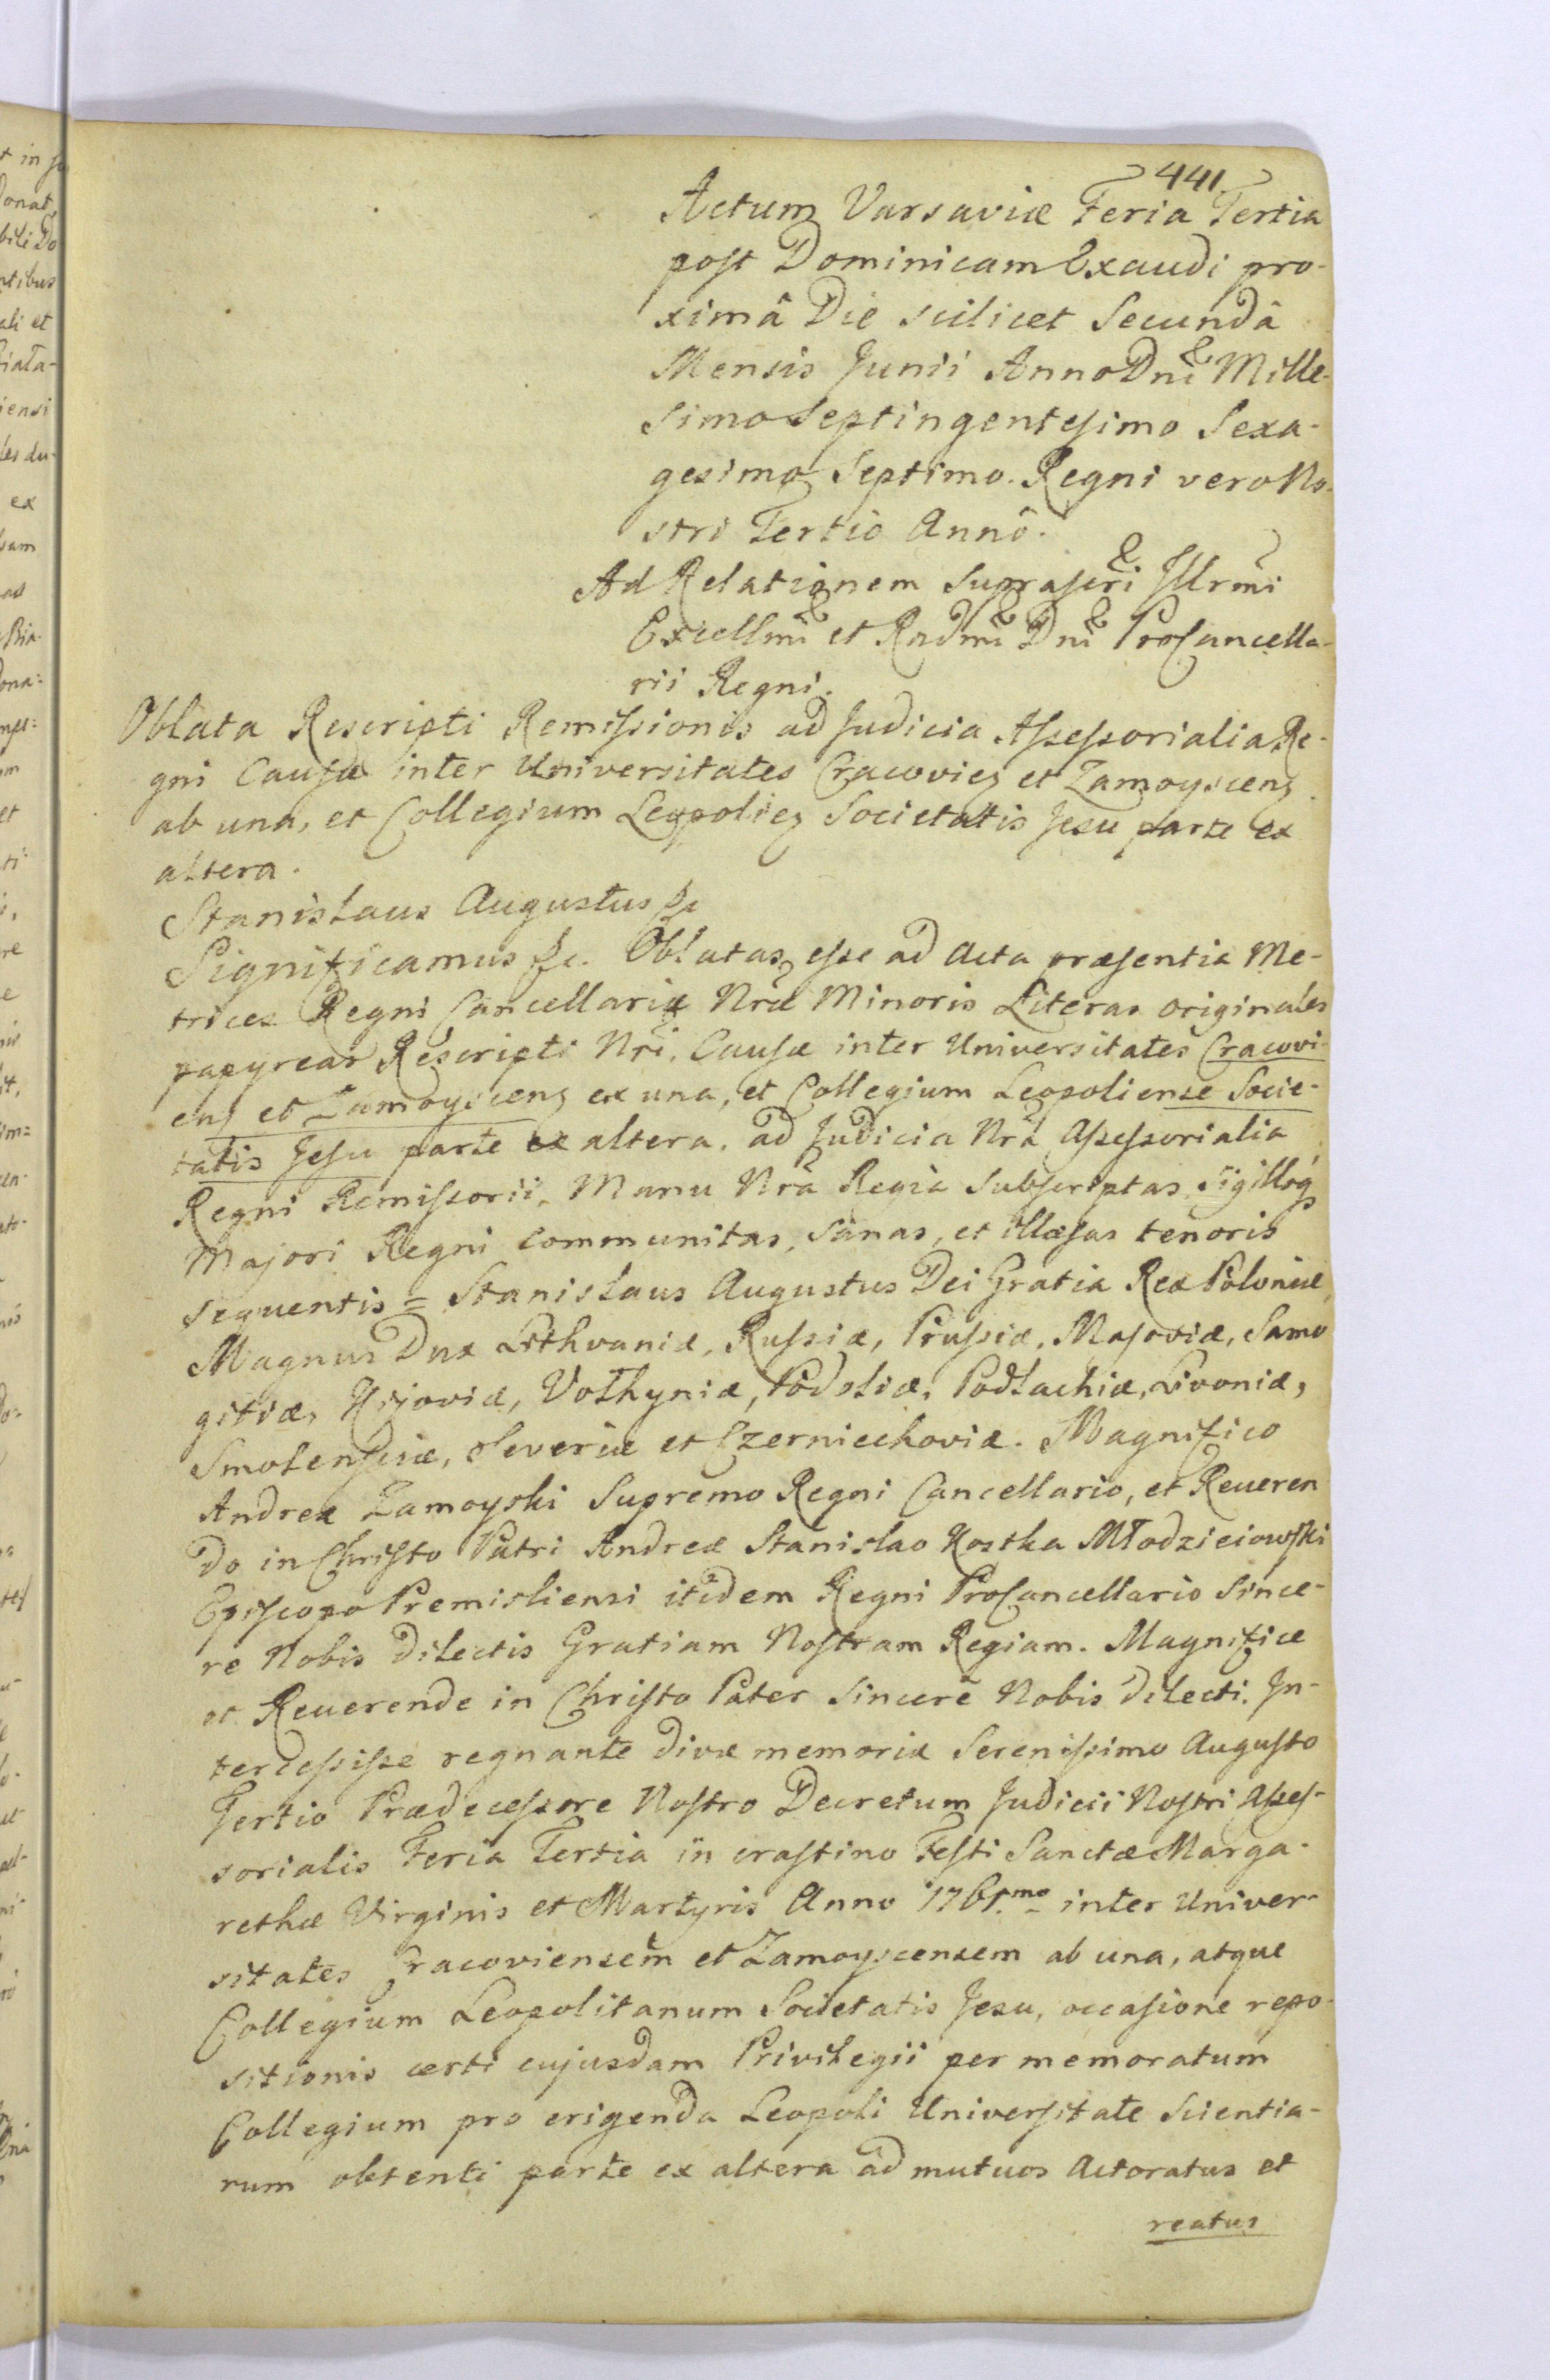 441
Actum Varsaviæ Feria Tertia
post Dominicam Exaudi pro-
ximâ Die scilicet Secundâ
Mensis Junii Anno Dni Mille-
simo Septingentesimo Sexa-
gesimo Septimo. Regni vero No-
stri Tertio Annô.
Ad Relationem Suprascri Illrmi
Excellmi et Rndmi Dni ProCancella-
rii Regni.
Oblata Rescripti Remissionis ad Judicia Assessorialia Re-
gni Causæ inter Universitates Cracovieñ et Zamoysceñ
ab una, et Collegium Leopolieñ Societatis Jesu parte ex
altera.
Stanislaus Augustus &c
Significamus &c. Oblatas esse ad Acta præsentia Me-
trices Regni Cancellariæ Nræ Minoris Literas originales
papyreas Rescripti Nri, Causæ inter Universitates Cracovi-
eñ et Zamoysceñ ex una, et Collegium Leopoliense Socie-
tatis Jesu parte ex altera, ad Judicia Nrã Assessorialia
Regni Remissorii, Manu Nrã Regiâ Subscriptas sigilloq
Majori Regni communitas, Sanas, et illæsas tenoris
sequentis = Stanislaus Augustus Dei Gratia Rex Poloniæ,
Magnus Dux Lithvaniæ, Russiæ, Prussiæ, Masoviæ, Samo
gitiæ, Kijoviæ, Volhyniæ, Podoliæ, Podlachiæ, Livoniæ,
Smolensciæ, Severiæ et Czerniechoviæ. Magnifico
Andreæ Zamoyski Supremo Regni Cancellario, et Reueren
do in Christo Patri Andreæ Stanislao Kostka Młodzieiowski
Episcopo Premisliensi itidem Regni ProCancellario Since-
re Nobis dilectis Gratiam Nostram Regiam. Magnifice
et Reuerende in Christo Pater Sincerè Nobis dilecti. In-
tercessisse regnante divæ memoriæ Serenissimo Augusto
Tertio Prædecessore Nostro Decretum Judicii Nostri Asses-
sorialis Feria Tertia in crastino Festi Sanctæ Marga-
rethæ Virginis et Martyris Anno 1761.mo inter Univer-
sitates Cracoviensem et Zamoyscensem ab una, atque
Collegium Leopolitanum Societatis Jesu, occasione repo-
sitionis certi cujusdam Privilegii per memoratum
Collegium pro erigenda Leopoli Universitate Scientia-
rum obtenti parte ex altera ad mutuos Actoratus et
reatus